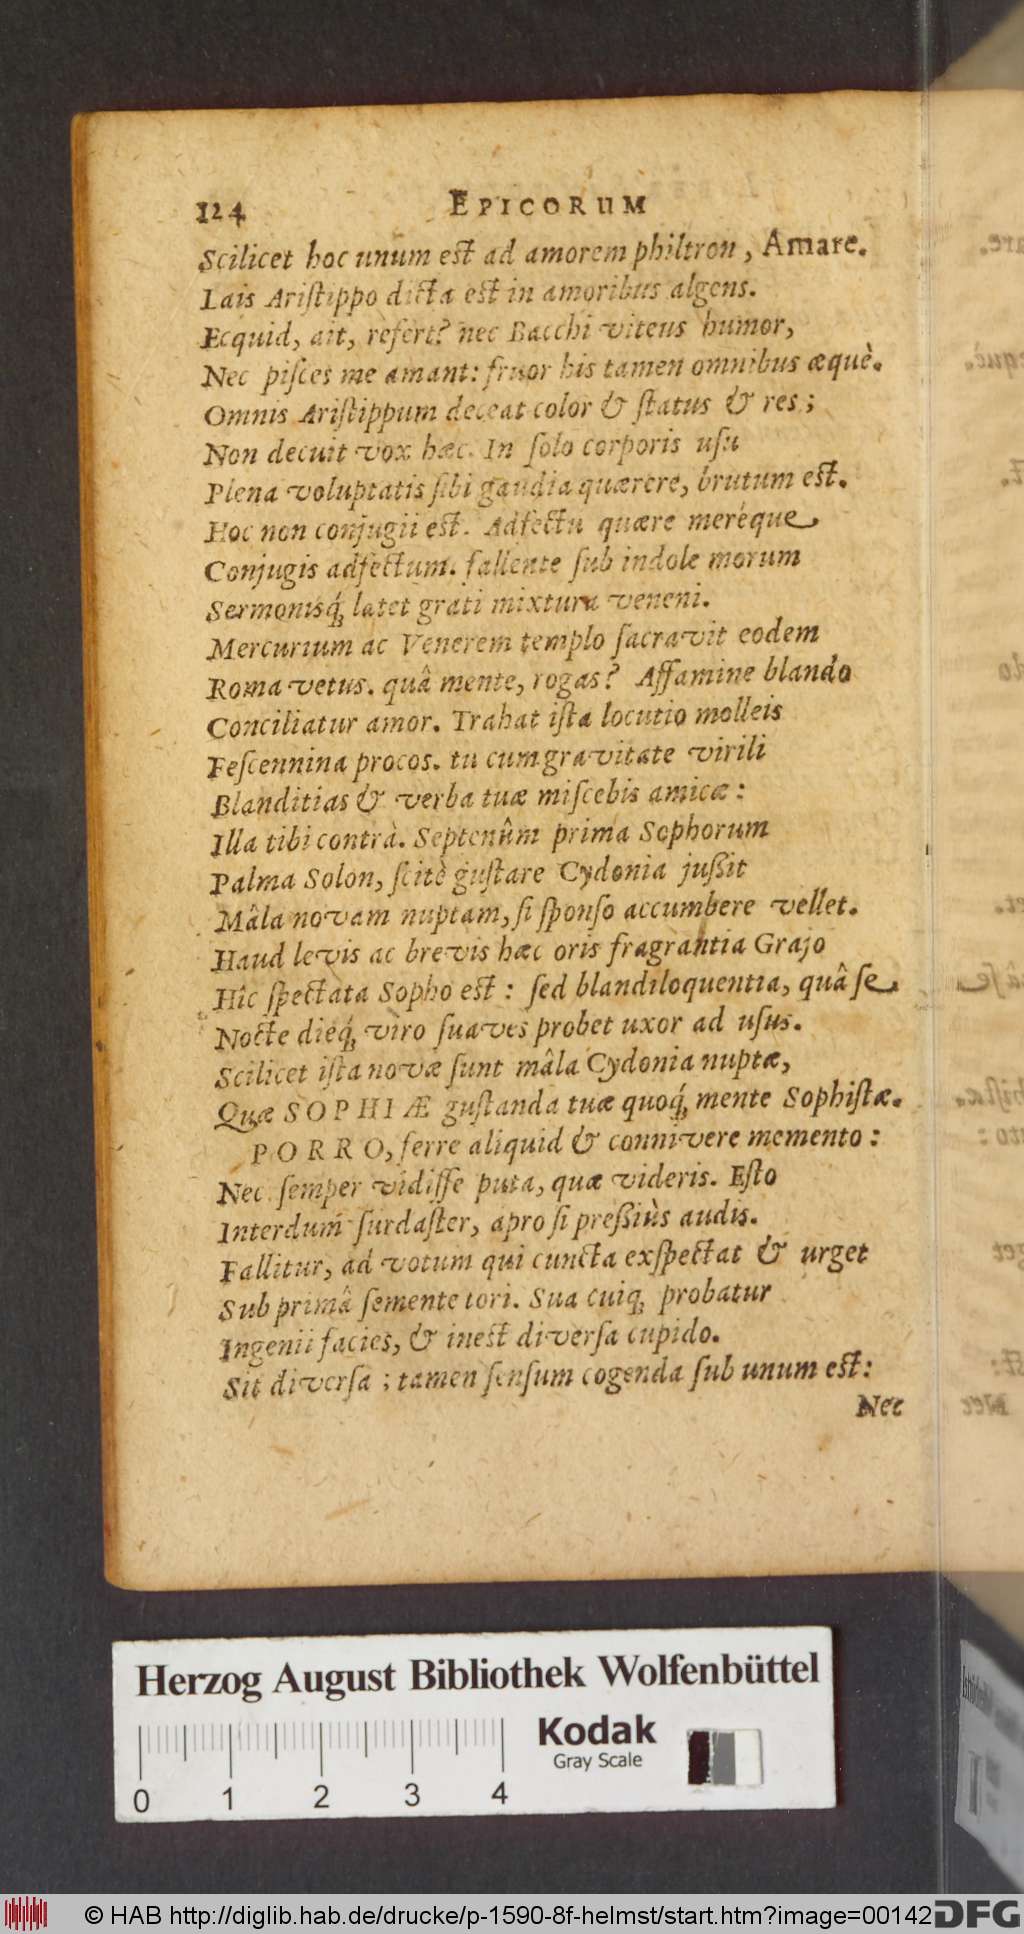 124 EPICORUM
Scilicet hoc unum est ad amorem philtron, Amare.
Lais Aristippo dicta est in amoribus algens.
Ecquid, ait, refert? nec Bacchi viteus humor,
Nec pisces me amant: fruor his tamen omnibus æquè.
Omnis Aristippum deceat color & status & res;
Non decuit vox hæc. In solo corporis usu
Plena voluptatis sibi gaudia quærere, brutum est.
Hoc non conjugii est. Adfectu quære merèque
Conjugis adfectum. fallente sub indole morum
Sermonisq́; latet grati mixtura veneni.
Mercurium ac Venerem templo sacravit eodem
Roma vetus. quâ mente, rogas? Affamine blando
Conciliatur amor. Trahat ista locutio molleis
Fescennina procos. tu cum gravitate virili
Blanditias & verba tuæ miscebis amicæ:
Illa tibi contrà. Septenûm prima Sophorum
Palma Solon, scitè gustare Cydonia jußit
Mâla novam nuptam, si sponso accumbere vellet.
Haud levis ac brevis hæc oris fragrantia Grajo
Hîc spectata Sopho est: sed blandiloquentia, quâ se
Nocte dieq́; viro suaves probet uxor ad usus.
Scilicet ista novæ sunt mâla Cydonia nuptæ,
Quæ SOPHIÆ gustanda tuæ quoq́; mente Sophistæ.
PORRO, ferre aliquid & connivere memento:
Nec semper vidisse puta, quæ videris. Esto
Interdum surdaster, apro si preßiùs audis.
Fallitur, ad votum qui cuncta exspectat & urget
Sub primâ semente tori. Sua cuiq; probatur
Ingenii facies, & inest diversa cupido.
Sit diversa; tamen sensum cogenda sub unum est:
Nec
Herzog August Bibliothek Wolfenbüttel
Kodak
Gray Scale
0 1 2 3 4
© HAB http://diglib.hab.de/drucke/p-1590-8f-helmst/start.htm?image=00142
DFG